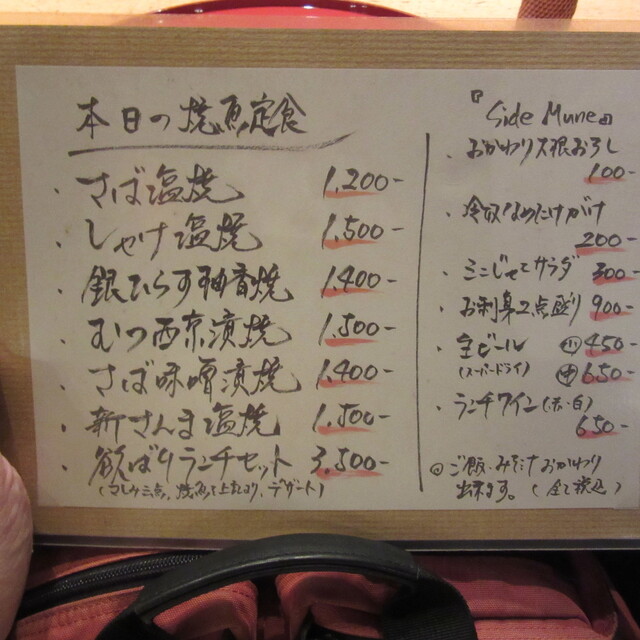 本日の焼魚定食
・さば塩焼 1,200-
・しゃけ塩焼 1,500-
・銀ひらす柚香焼 1,400-
・むつ西京漬焼 1,500-
・さば味噌漬焼 1,400-
・新さんま塩焼 1,500-
・欲ばりランチセット 3,500-
(さしみ三点、焼魚 デザート)
『Side Mune』
・おかわり大根おろし
100-
・冷奴なめたけがけ
200-
・ミニじゃこサラダ 300-
・お刺身2点盛り 900-
・生ビール ㊙小 450-
(スーパードライ) ㊥ 650-
・ランチワイン(赤・白)
650-
ご飯・みそ汁おかわり
出来ます。(全て税込)